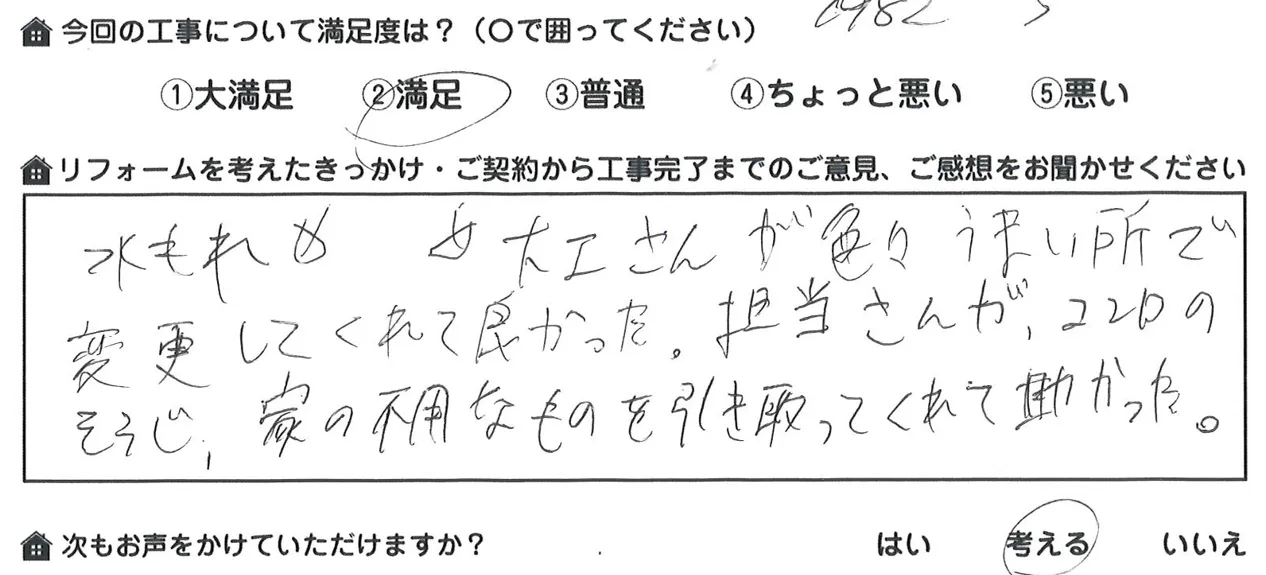 今回の工事について満足度は？（〇で囲ってください）
①大満足 ②満足 ③普通 ④ちょっと悪い ⑤悪い
リフォームを考えたきっかけ・ご契約から工事完了までのご意見、ご感想をお聞かせください
水もれ 大工さんが色々うまい所で
変更してくれて良かった。担当さんが、の
そうじ、家の不用なものを引き取ってくれて助かった。
次もお声をかけていただけますか？ はい 考える いいえ